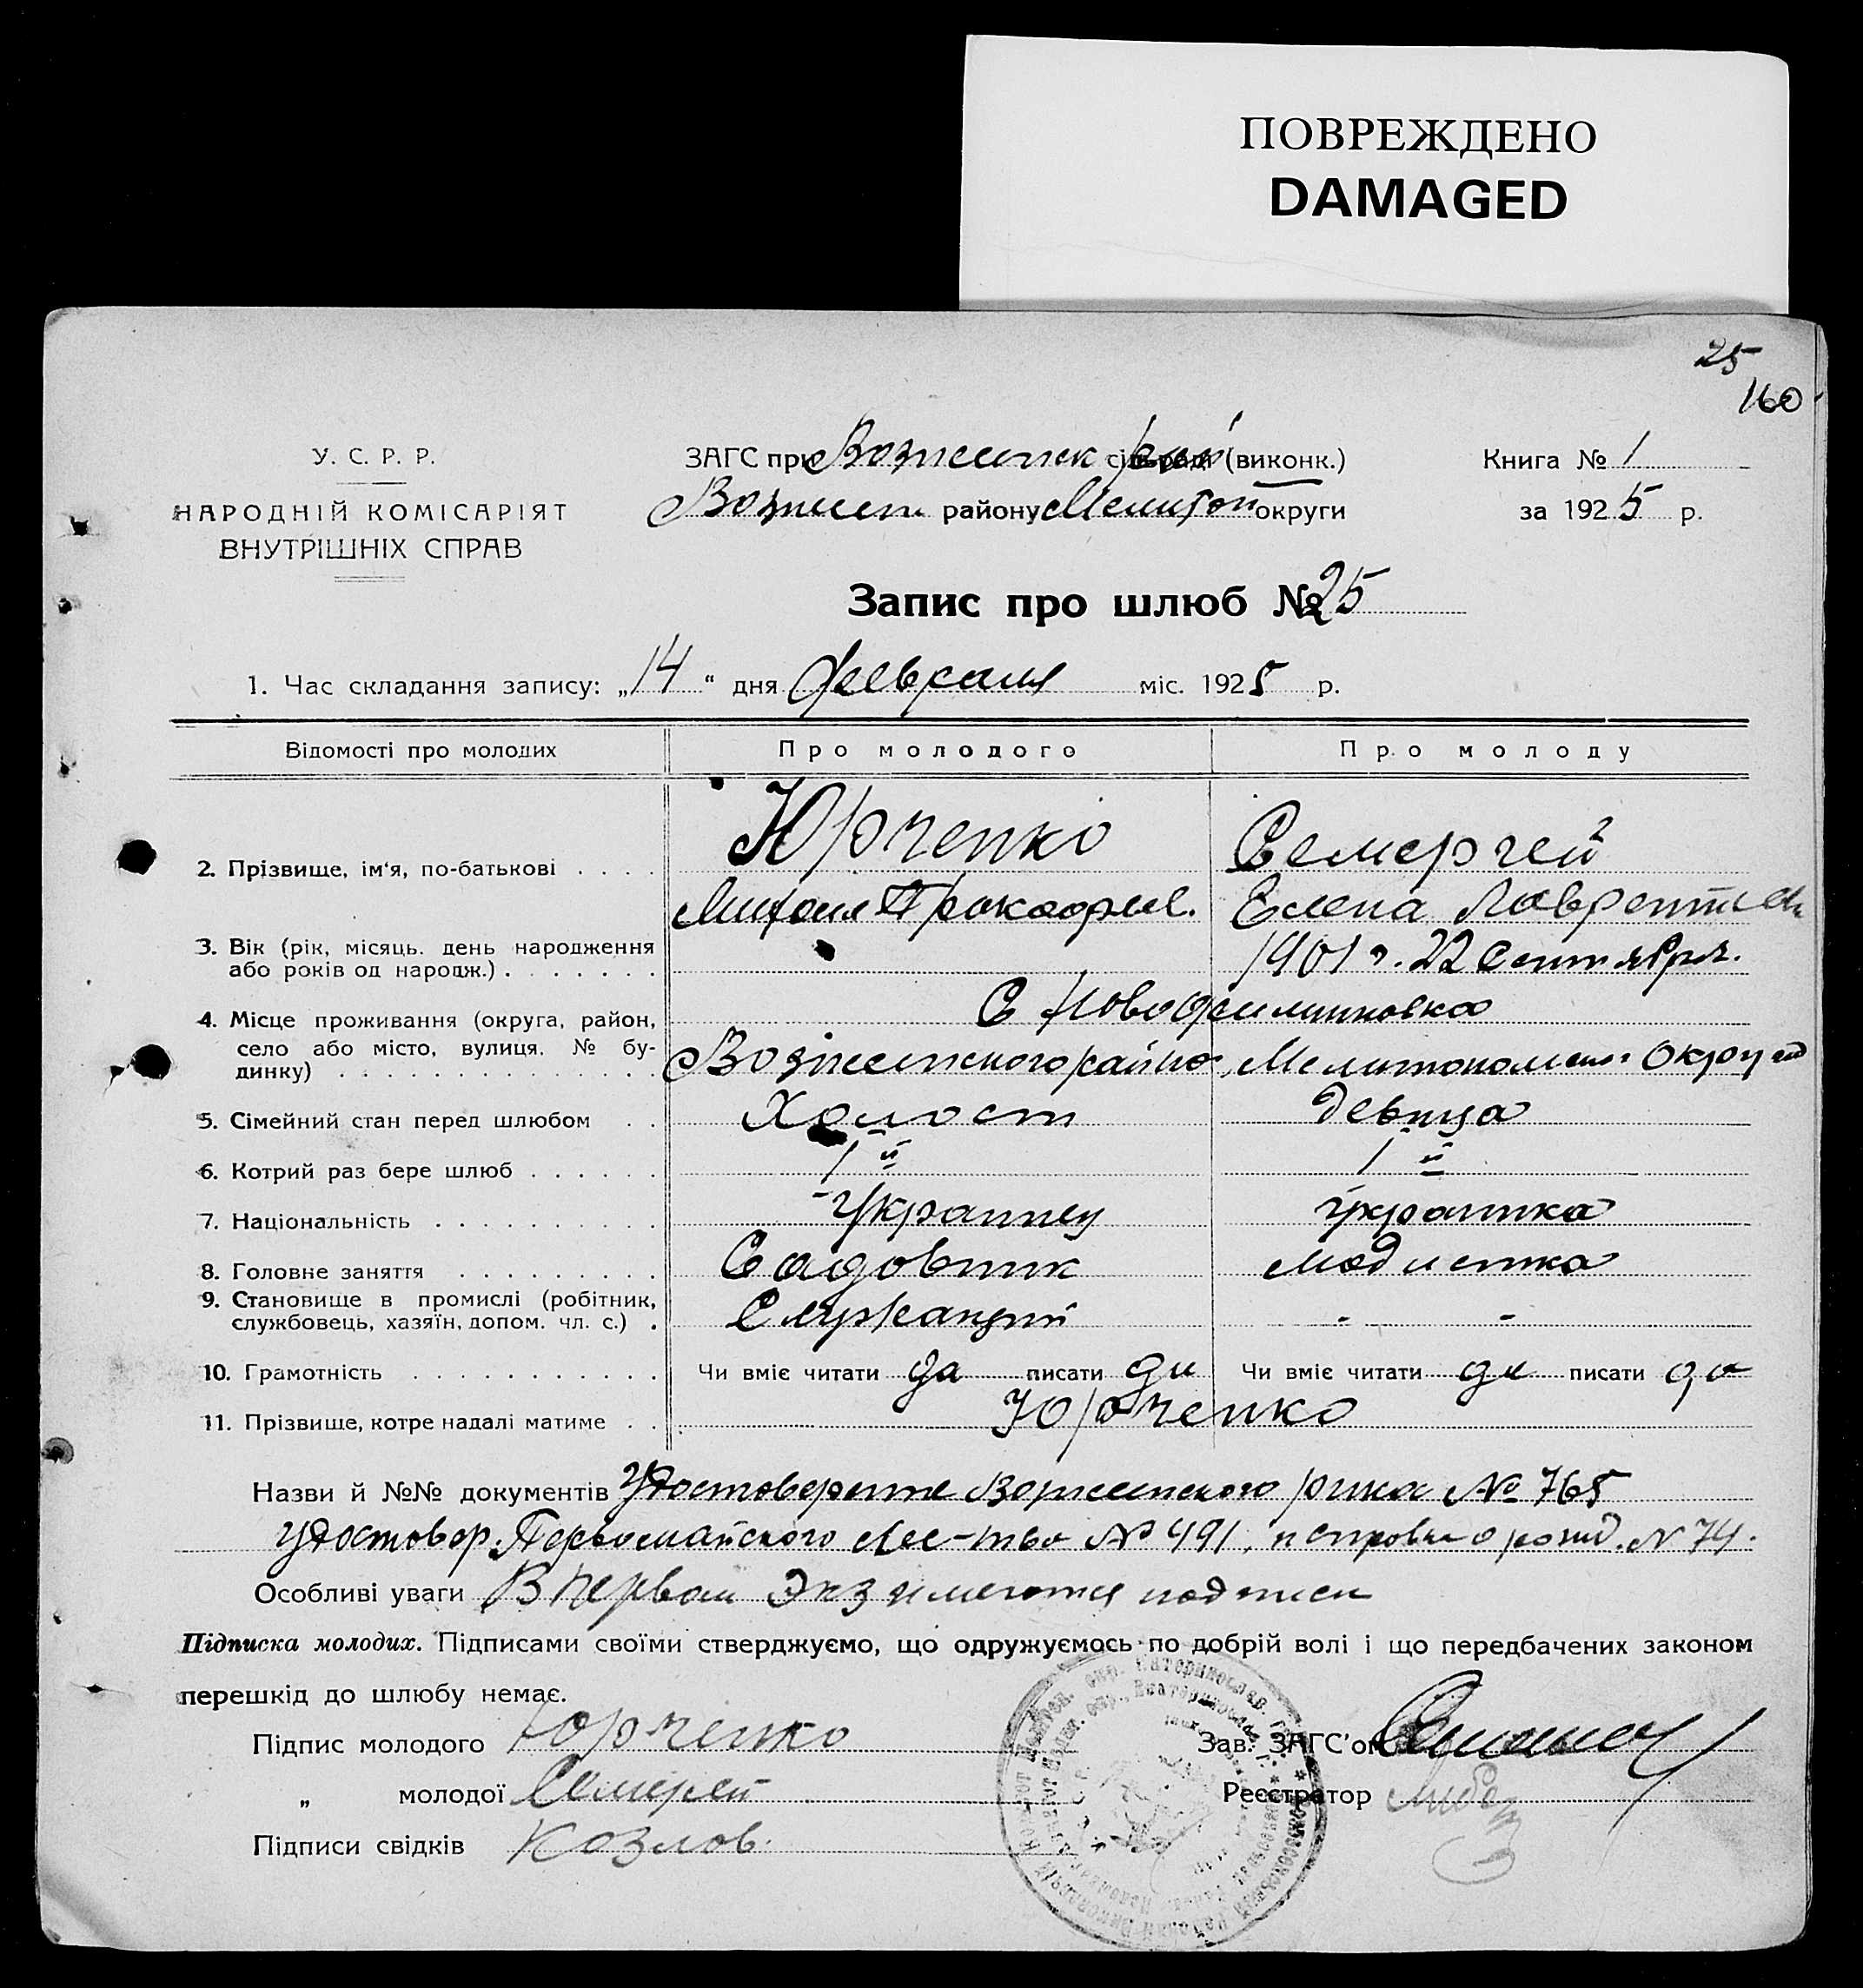 ПОВРЕЖДЕНО
DAMAGED
25
160
У. С. Р. Р.
НАРОДНІЙ КОМІСАРІЯТ
ВНУТРІШНІХ СПРАВ
ЗАГС при сільраді (виконк.)
району Мелитоп округи
Книга № 1
за 1925 р.
Запис про шлюб № 25
1. Час складання запису: „14“ дня февраля міс. 1925 р.
Відомості про молодих Про молодого Про молоду
2. Прізвище, ім‘я, по-батькові . . . .
Юрченко
Михаил Прокофье.
Елена Лаврентьев
3. Вік (рік, місяць. день народження
або років од народж.) . . . . . . .
1901 г. 22 Сентября.
4. Місце проживання (округа, район,
село або місто, вулиця. № бу-
динку) . . . . . . . . . . . . . .
С Новофилиповка
Мелитопольск Округа
5. Сімейний стан перед шлюбом . . Холост девица
6. Котрий раз бере шлюб . . . . . . 1й 1й
7. Національність . . . . . . . . . . Украинец украинка
8. Головне заняття . . . . . . . . . Садовник модистка
9. Становище в промислі (робітник,
службовець, хазяїн, допом. чл. с.) . Служащий - -
10. Грамотність . . . . . . . . . . . Чи вміє читати да писати да Чи вміє читати да писати да
11. Прізвище, котре надалі матиме . . Юрченко
Назви й №№ документів Удостоверение рика № 765
Удостовер. Первомайского Лес-тва № 491, и справка о рожд. N 74.
Особливі уваги В первом Экз имеются подписи
Підписка молодих. Підписами своїми стверджуємо, що одружуємось по добрій волі і що передбачених законом
перешкід до шлюбу немає.
Підпис молодого Юрченко
Зав. ЗАГС’ом
„ молодої
Реєстратор
Підписи свідків Козлов.